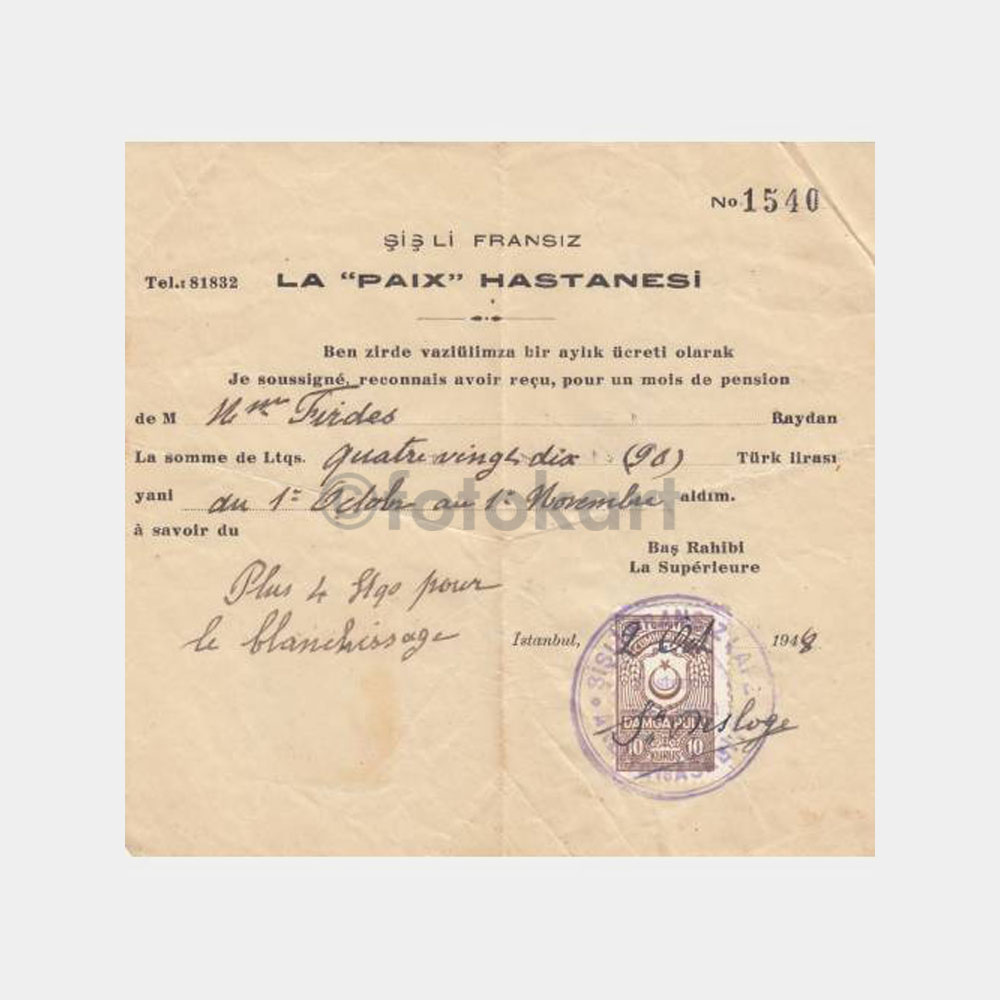 No 1540
ŞİŞLİ FRANSIZ
Tel.: 81832 LA "PAIX" HASTANESİ
Ben zirde vaziülimza bir aylık ücreti olarak
Je soussigné, reconnais avoir reçu, pour un mois de pension
de M Mme Firdes Baydan
La somme de Ltqs. quatre vingt dix (90) Türk lirası
yani du 1er Octobre au 1er Novembre aldım.
à savoir du
©fotokart
Baş Rahibi
La Supérieure
Plus 4 Ltqs pour
le blanchissage
Istanbul, 2 Oct 1948
DAMGA PULU
10 10
KURUŞ